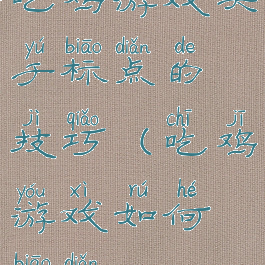 吃鸡游戏更
yú biāo diǎn de
于标点的
jì qiǎo chī jī
技巧（吃鸡
yóu xì rú hé
游戏如何
biāo diǎn